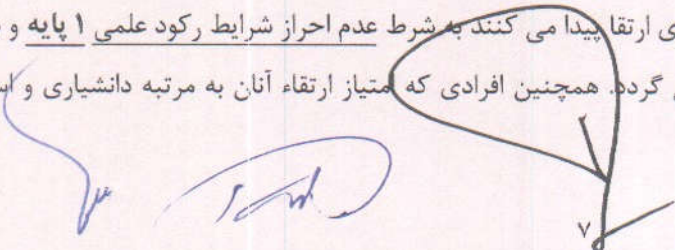 ی ارتقا پیدا می کنند به شرط عدم احراز شرایط رکود علمی ۱ پایه و
گردد. همچنین افرادی که امتیاز ارتقاء آنان به مرتبه دانشیاری و
۷